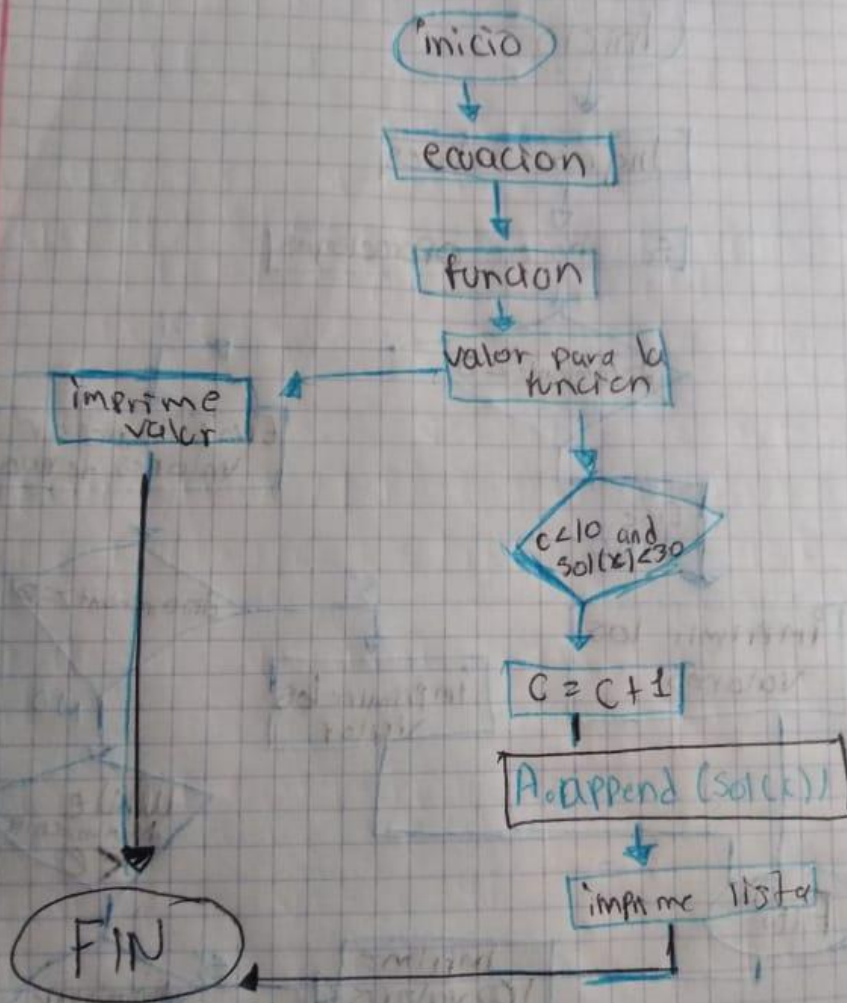 inicio
ecuacion
funcion
valor para la
funcion
imprime
valor
c<10 and
sol(x)<30
C = C + 1
A.append (sol(x))
imprime lista
FIN